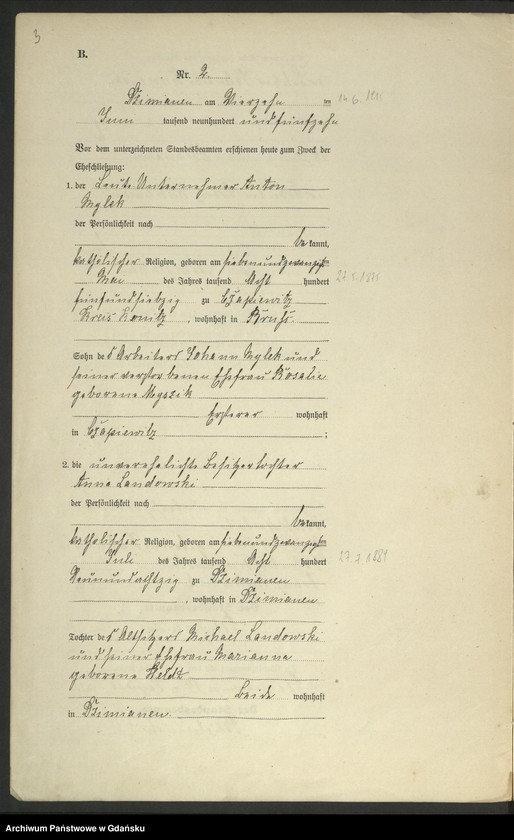 3
B.
Nr. 2.
Dzimianen am Vierzehn ten 14.6.1915
Juni tausend neunhundert undfünfzehn
Vor dem unterzeichneten Standesbeamten erschienen heute zum Zweck der
Eheschließung:
1. der Leute-Unternehmer Anton
Mylek
der Persönlichkeit nach
be kannt,
katholischer Religion, geboren am siebenundzwanzigsten
Mai des Jahres tausend Acht hundert 27.5.1875
fünfundsiebzig zu Czapiewitz
Kreis Konitz, wohnhaft in Bruß.
Sohn des Arbeiters Johann Mylek und
seiner verstorbenen Ehefrau Rosalie
geborene Myszik
Ersterer wohnhaft
in Czapiewitz ;
2. die unverehelichte Besitzertochter
Anna Landowski
der Persönlichkeit nach
be kannt,
katholischer Religion, geboren am siebenundzwanzigsten
Juli des Jahres tausend Acht hundert 27.7.1889
Neunundachtzig zu Dzimianen
, wohnhaft in Dzimianen
Tochter des Altsitzers Michael Landowski
und seiner Ehefrau Marianna
geborene Keldz
Beide wohnhaft
in Dzimianen.
Archiwum Państwowe w Gdańsku